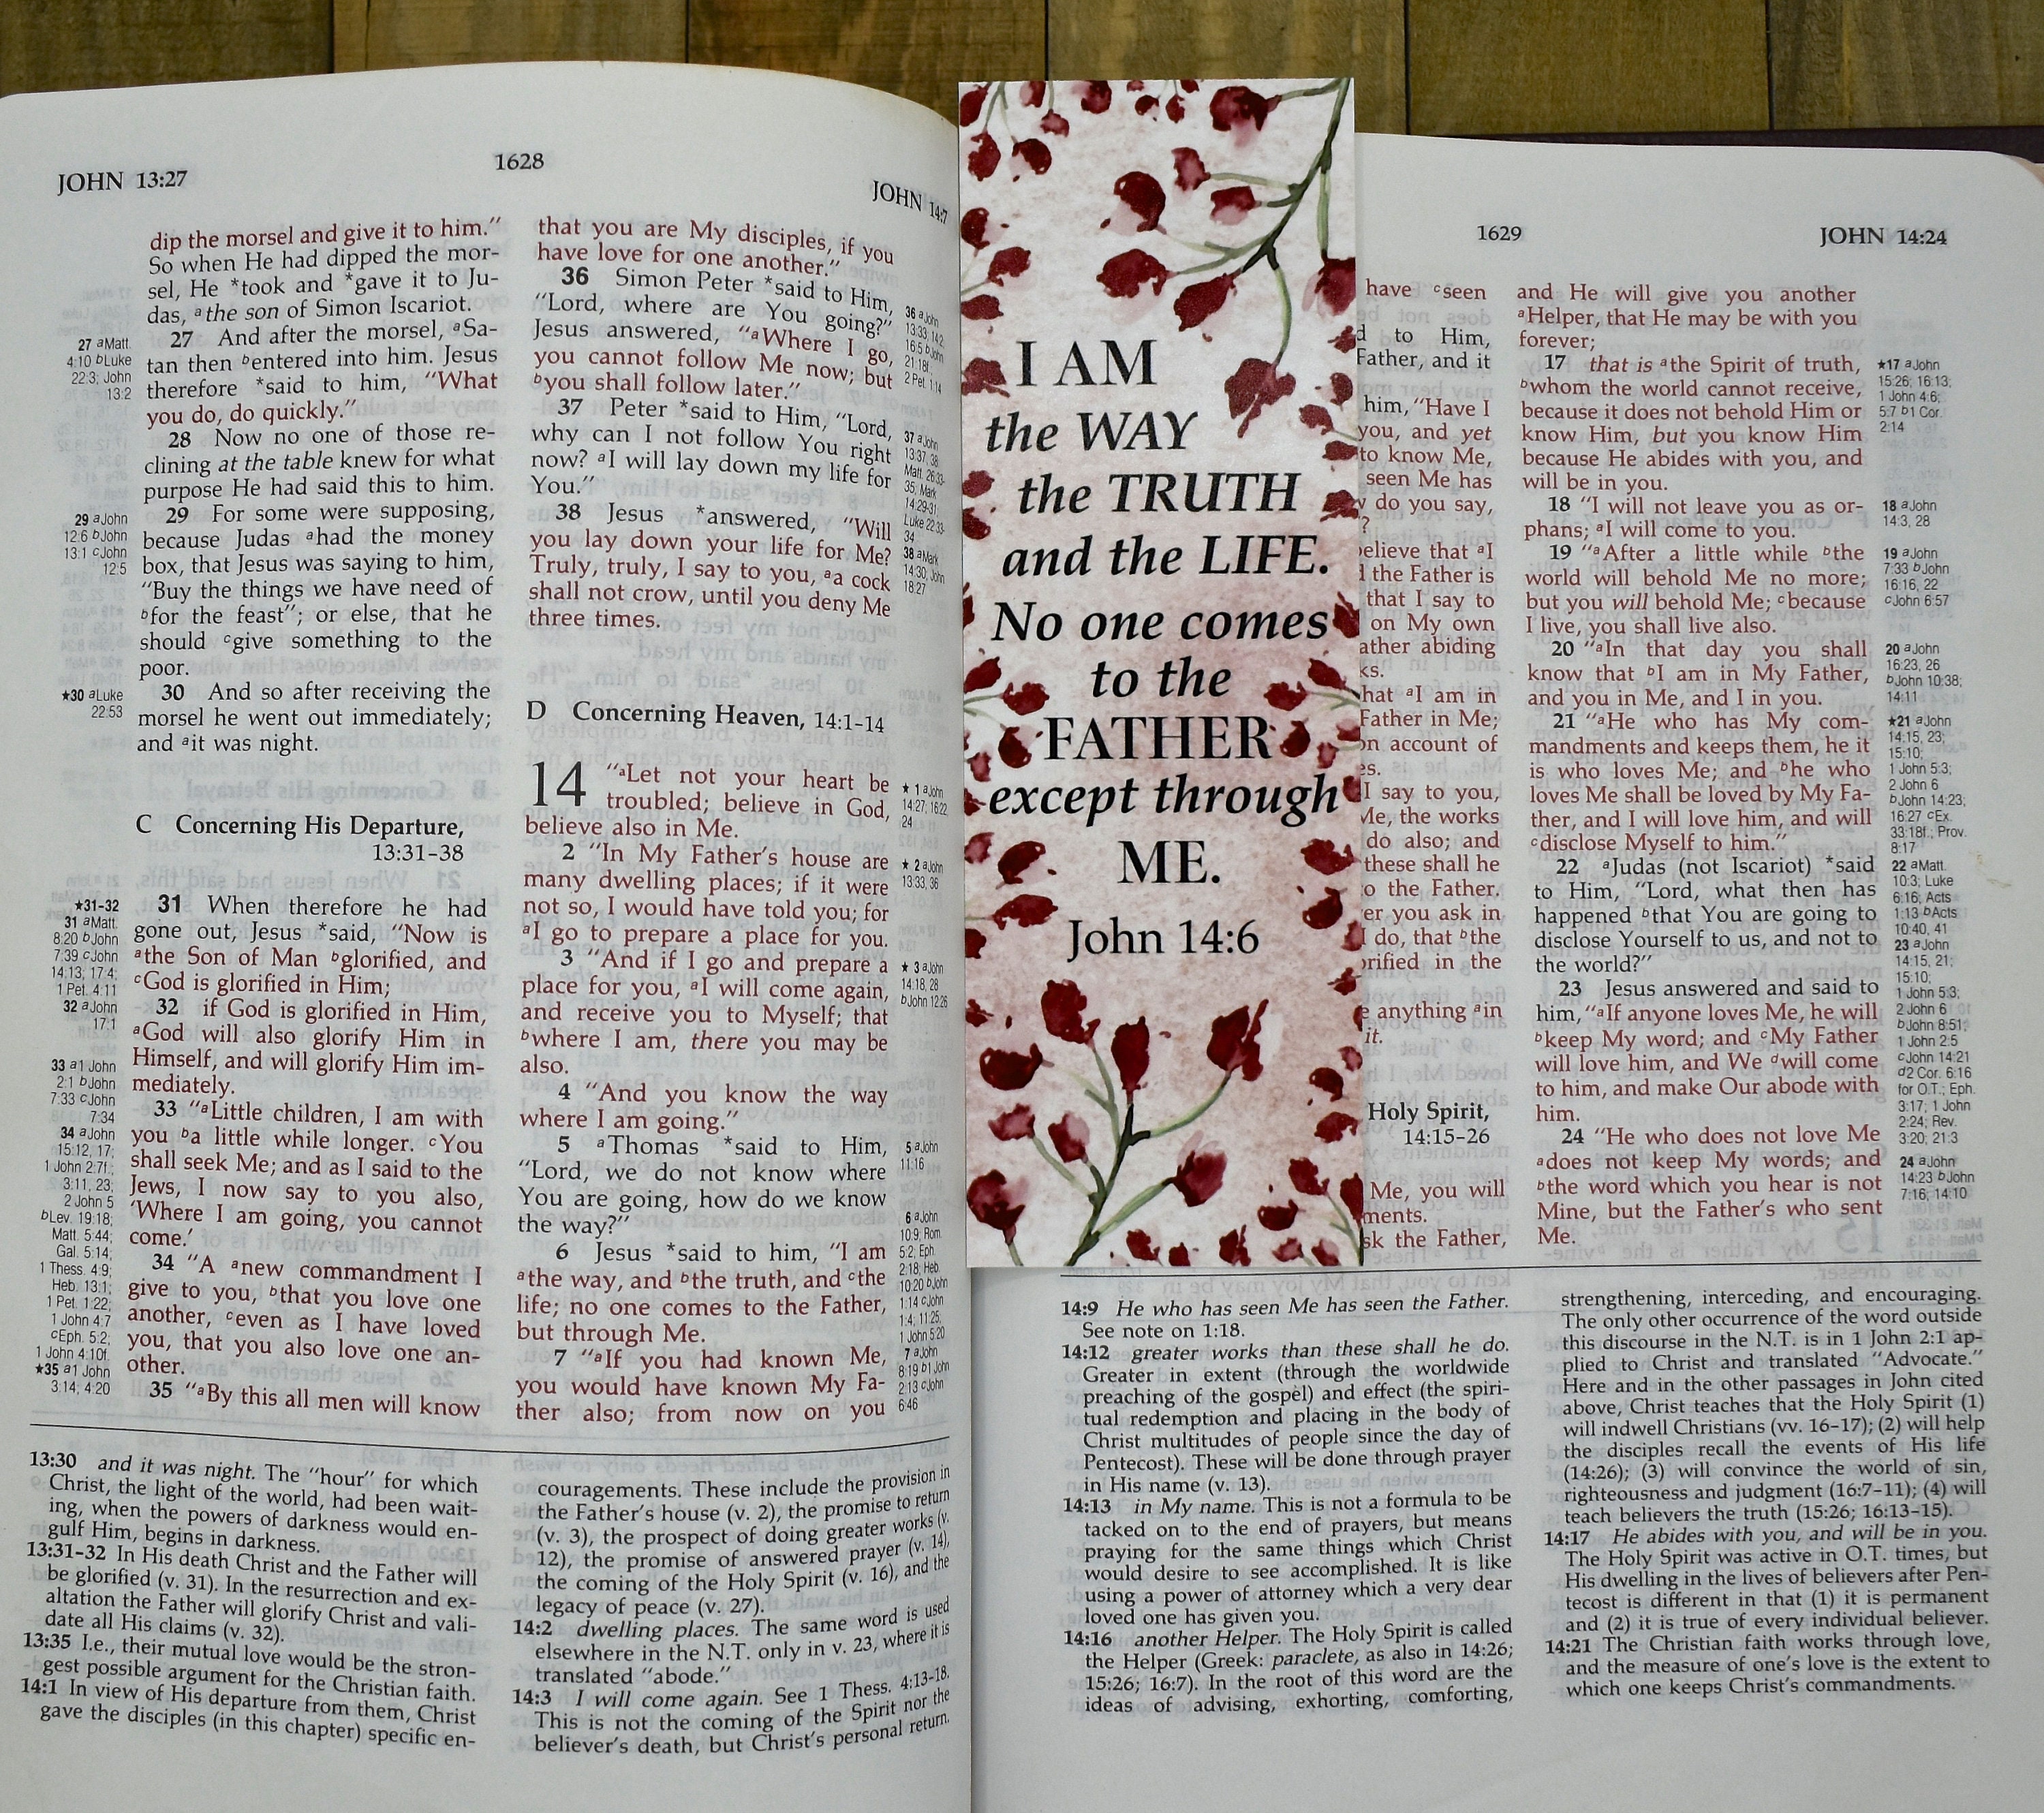 JOHN 13:27
1628
JOHN 14:7
dip the morsel and give it to him."
So when He had dipped the mor-
sel, He *took and *gave it to Ju-
das, ᵃthe son of Simon Iscariot.
27 And after the morsel, ᵃSa-
tan then ᵇentered into him. Jesus
therefore *said to him, "What
you do, do quickly."
28 Now no one of those re-
clining at the table knew for what
purpose He had said this to him.
29 For some were supposing,
because Judas ᵃhad the money
box, that Jesus was saying to him,
"Buy the things we have need of
ᵇfor the feast"; or else, that he
should ᶜgive something to the
poor.
30 And so after receiving the
morsel he went out immediately;
and ᵃit was night.
C Concerning His Departure,
13:31–38
31 When therefore he had
gone out, Jesus *said, "Now is
ᵃthe Son of Man ᵇglorified, and
ᶜGod is glorified in Him;
32 if God is glorified in Him,
ᵃGod will also glorify Him in
Himself, and will glorify Him im-
mediately.
33 "ᵃLittle children, I am with
you ᵇa little while longer. ᶜYou
shall seek Me; and as I said to the
Jews, I now say to you also,
'Where I am going, you cannot
come.'
34 "A ᵃnew commandment I
give to you, ᵇthat you love one
another, ᶜeven as I have loved
you, that you also love one an-
other.
35 "ᵃBy this all men will know
27 aMatt.
4:10 bLuke
22:3; John
13:2
29 aJohn
12:6 bJohn
13:1 cJohn
12:5
★30 aLuke
22:53
★31-32
31 aMatt.
8:20 bJohn
7:39 cJohn
14:13; 17:4;
1 Pet. 4:11
32 aJohn
17:1
33 a1 John
2:1 bJohn
7:33 cJohn
7:34
34 aJohn
15:12, 17;
1 John 2:7f.;
3:11, 23;
2 John 5
bLev. 19:18;
Matt. 5:44;
Gal. 5:14;
1 Thess. 4:9;
Heb. 13:1;
1 Pet. 1:22;
1 John 4:7
cEph. 5:2;
1 John 4:10f.
★35 a1 John
3:14; 4:20
that you are My disciples, if you
have love for one another."
36 Simon Peter *said to Him,
"Lord, where are You going?"
Jesus answered, "ᵃWhere I go,
you cannot follow Me now; but
ᵇyou shall follow later."
37 Peter *said to Him, "Lord,
why can I not follow You right
now? ᵃI will lay down my life for
You."
38 Jesus *answered, "Will
you lay down your life for Me?
Truly, truly, I say to you, ᵃa cock
shall not crow, until you deny Me
three times.
D Concerning Heaven, 14:1–14
14 "ᵃLet not your heart be
troubled; believe in God,
believe also in Me.
2 "In My Father's house are
many dwelling places; if it were
not so, I would have told you; for
ᵃI go to prepare a place for you.
3 "And if I go and prepare a
place for you, ᵃI will come again,
and receive you to Myself; that
ᵇwhere I am, there you may be
also.
4 "And you know the way
where I am going."
5 ᵃThomas *said to Him,
"Lord, we do not know where
You are going, how do we know
the way?"
6 Jesus *said to him, "I am
ᵃthe way, and ᵇthe truth, and ᶜthe
life; no one comes to the Father,
but through Me.
7 "ᵃIf you had known Me,
you would have known My Fa-
ther also; from now on you
36 aJohn
13:33; 14:2;
16:5 bJohn
21:18f.;
2 Pet. 1:14
37 aJohn
13:37, 38;
Matt. 26:33-
35; Mark
14:29-31;
Luke 22:33-
34
38 aMark
14:30; John
18:27
★ 1 aJohn
14:27; 16:22,
24
★ 2 aJohn
13:33, 36
★ 3 aJohn
14:18, 28
bJohn 12:26
5 aJohn
11:16
6 aJohn
10:9; Rom.
5:2; Eph.
2:18; Heb.
10:20 bJohn
1:14 cJohn
1:4; 11:25;
1 John 5:20
7 aJohn
8:19 b1 John
2:13 cJohn
6:46
13:30 and it was night. The "hour" for which
Christ, the light of the world, had been wait-
ing, when the powers of darkness would en-
gulf Him, begins in darkness.
13:31–32 In His death Christ and the Father will
be glorified (v. 31). In the resurrection and ex-
altation the Father will glorify Christ and vali-
date all His claims (v. 32).
13:35 I.e., their mutual love would be the stron-
gest possible argument for the Christian faith.
14:1 In view of His departure from them, Christ
gave the disciples (in this chapter) specific en-
couragements. These include the provision in
the Father's house (v. 2), the promise to return
(v. 3), the prospect of doing greater works (v.
12), the promise of answered prayer (v. 14),
the coming of the Holy Spirit (v. 16), and the
legacy of peace (v. 27).
14:2 dwelling places. The same word is used
elsewhere in the N.T. only in v. 23, where it is
translated "abode."
14:3 I will come again. See 1 Thess. 4:13–18.
This is not the coming of the Spirit nor the
believer's death, but Christ's personal return.
I AM
the WAY
the TRUTH
and the LIFE.
No one comes
to the
FATHER
except through
ME.
John 14:6
1629
JOHN 14:24
have ᶜseen
to Him,
Father, and it
him, "Have I
you, and yet
to know Me,
seen Me has
do you say,
believe that ᵃI
the Father is
that I say to
on My own
abiding
that ᵃI am in
Father in Me;
on account of
I say to you,
Me, the works
do also; and
these shall he
the Father.
you ask in
do, that ᵇthe
in the
anything ᵃin
it.
Holy Spirit,
14:15–26
Me, you will
the Father,
and He will give you another
ᵃHelper, that He may be with you
forever;
17 that is ᵃthe Spirit of truth,
ᵇwhom the world cannot receive,
because it does not behold Him or
know Him, but you know Him
because He abides with you, and
will be in you.
18 "I will not leave you as or-
phans; ᵃI will come to you.
19 "ᵃAfter a little while ᵇthe
world will behold Me no more;
but you will behold Me; ᶜbecause
I live, you shall live also.
20 "ᵃIn that day you shall
know that ᵇI am in My Father,
and you in Me, and I in you.
21 "ᵃHe who has My com-
mandments and keeps them, he it
is who loves Me; and ᵇhe who
loves Me shall be loved by My Fa-
ther, and I will love him, and will
ᶜdisclose Myself to him."
22 ᵃJudas (not Iscariot) *said
to Him, "Lord, what then has
happened ᵇthat You are going to
disclose Yourself to us, and not to
the world?"
23 Jesus answered and said to
him, "ᵃIf anyone loves Me, he will
ᵇkeep My word; and ᶜMy Father
will love him, and We ᵈwill come
to him, and make Our abode with
him.
24 "He who does not love Me
ᵃdoes not keep My words; and
ᵇthe word which you hear is not
Mine, but the Father's who sent
Me.
★17 aJohn
15:26; 16:13;
1 John 4:6;
5:7 b1 Cor.
2:14
18 aJohn
14:3, 28
19 aJohn
7:33 bJohn
16:16, 22
cJohn 6:57
20 aJohn
16:23, 26
bJohn 10:38;
14:11
★21 aJohn
14:15, 23;
15:10;
1 John 5:3;
2 John 6
bJohn 14:23;
16:27 cEx.
33:18f.; Prov.
8:17
22 aMatt.
10:3; Luke
6:16; Acts
1:13 bActs
10:40, 41
23 aJohn
14:15, 21;
15:10;
1 John 5:3;
2 John 6
bJohn 8:51;
1 John 2:5
cJohn 14:21
d2 Cor. 6:16
for O.T.; Eph.
3:17; 1 John
2:24; Rev.
3:20; 21:3
24 aJohn
14:23 bJohn
7:16; 14:10
14:9 He who has seen Me has seen the Father.
See note on 1:18.
14:12 greater works than these shall he do.
Greater in extent (through the worldwide
preaching of the gospel) and effect (the spiri-
tual redemption and placing in the body of
Christ multitudes of people since the day of
Pentecost). These will be done through prayer
in His name (v. 13).
14:13 in My name. This is not a formula to be
tacked on to the end of prayers, but means
praying for the same things which Christ
would desire to see accomplished. It is like
using a power of attorney which a very dear
loved one has given you.
14:16 another Helper. The Holy Spirit is called
the Helper (Greek: paraclete, as also in 14:26;
15:26; 16:7). In the root of this word are the
ideas of advising, exhorting, comforting,
strengthening, interceding, and encouraging.
The only other occurrence of the word outside
this discourse in the N.T. is in 1 John 2:1 ap-
plied to Christ and translated "Advocate."
Here and in the other passages in John cited
above, Christ teaches that the Holy Spirit (1)
will indwell Christians (vv. 16–17); (2) will help
the disciples recall the events of His life
(14:26); (3) will convince the world of sin,
righteousness and judgment (16:7–11); (4) will
teach believers the truth (15:26; 16:13–15).
14:17 He abides with you, and will be in you.
The Holy Spirit was active in O.T. times, but
His dwelling in the lives of believers after Pen-
tecost is different in that (1) it is permanent
and (2) it is true of every individual believer.
14:21 The Christian faith works through love,
and the measure of one's love is the extent to
which one keeps Christ's commandments.